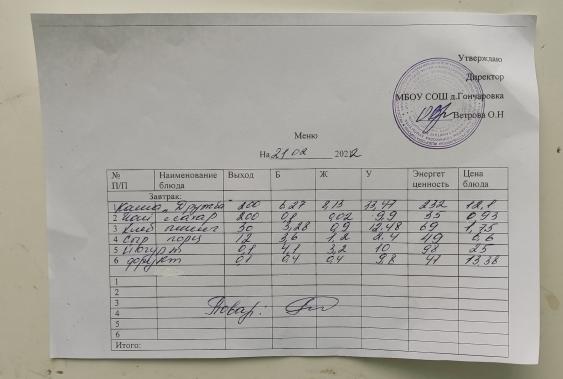 Утверждаю
Директор
МБОУ СОШ д.Гончаровка
Ветрова О.Н
Меню
На 21 02 2022
№ П/П Наименование блюда Выход Б Ж У Энергет ценность Цена блюда
Завтрак:
Каша "Дружба" 200 6.27 13,47 232 12,8
2 Чай сахар 200 0,8 0,02 9,9 35 0,93
3 Хлеб 30 3,28 0,9 12,48 69 1,75
4 Сыр порц 12 3,6 1,2 2.4 49 6.6
5 Йогурт 0,8 4,8 3,2 10 98 25
6 фрукт 0,1 0,4 0,4 9,8 47 13,38
1
2
3 Повар:
4
5
6
Итого: